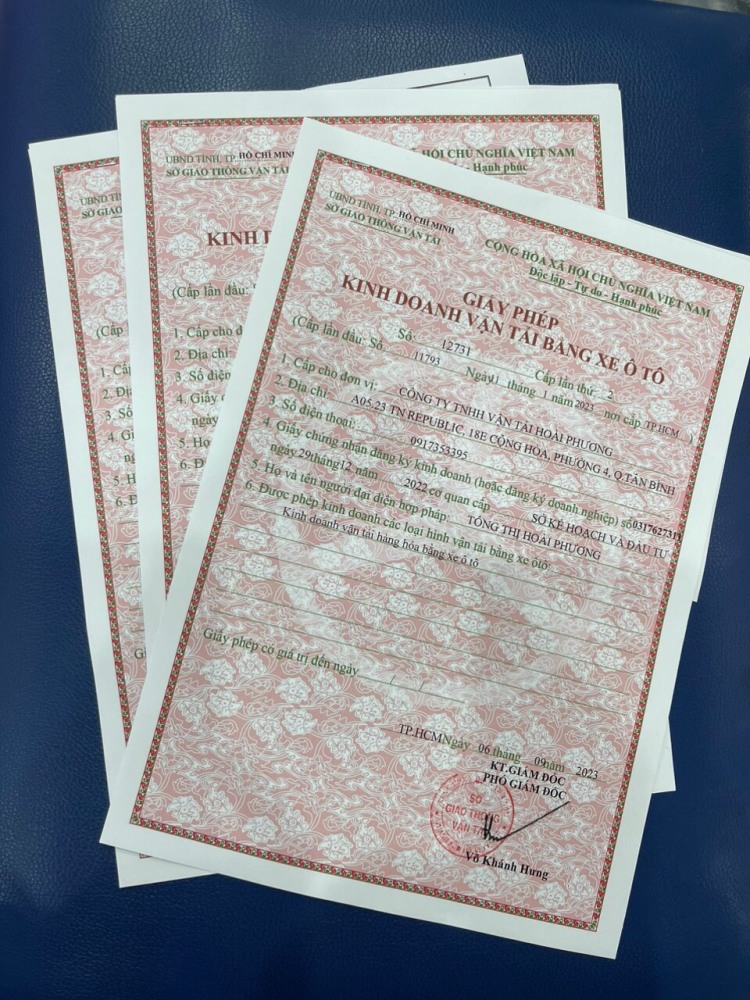 UBND TỈNH, TP. HỒ CHÍ MINH
SỞ GIAO THÔNG VẬN TẢI
CỘNG HÒA XÃ HỘI CHỦ NGHĨA VIỆT NAM
Độc lập - Tự do - Hạnh phúc
GIẤY PHÉP
KINH DOANH VẬN TẢI BẰNG XE Ô TÔ
Số: 12731 Cấp lần thứ: 2
(Cấp lần đầu: Số 11793 Ngày 11 tháng 1 năm 2023 nơi cấp TP.HCM )
1. Cấp cho đơn vị: CÔNG TY TNHH VẬN TẢI HOÀI PHƯƠNG
2. Địa chỉ: A05.23 TN REPUBLIC, 18E CỘNG HÒA, PHƯỜNG 4, Q.TÂN BÌNH
3. Số điện thoại: 0917353395
4. Giấy chứng nhận đăng ký kinh doanh (hoặc đăng ký doanh nghiệp) số
ngày 29 tháng 12 năm 2022 cơ quan cấp SỞ KẾ HOẠCH VÀ ĐẦU TƯ
5. Họ và tên người đại diện hợp pháp: TỐNG THỊ HOÀI PHƯƠNG
6. Được phép kinh doanh các loại hình vận tải bằng xe ôtô:
Kinh doanh vận tải hàng hóa bằng xe ô tô
Giấy phép có giá trị đến ngày / /
TP.HCM Ngày 06 tháng 09 năm 2023
KT.GIÁM ĐỐC
PHÓ GIÁM ĐỐC
SỞ
GIAO THÔNG
VẬN TẢI
Võ Khánh Hưng
UBND TỈNH, TP. HỒ CHÍ MINH
SỞ GIAO THÔNG VẬN TẢI
HỘI CHỦ NGHĨA VIỆT NAM
- Hạnh phúc
KINH
(Cấp lần đầu:
1. Cấp cho đ
2. Địa chỉ:
3. Số điện
4. Giấy
ngày
5. Họ
6. Đ
SỞ GIAO
(Cấp
1. Cấ
2. Đị
3. Số
4. Gi
5. H
6. Đ